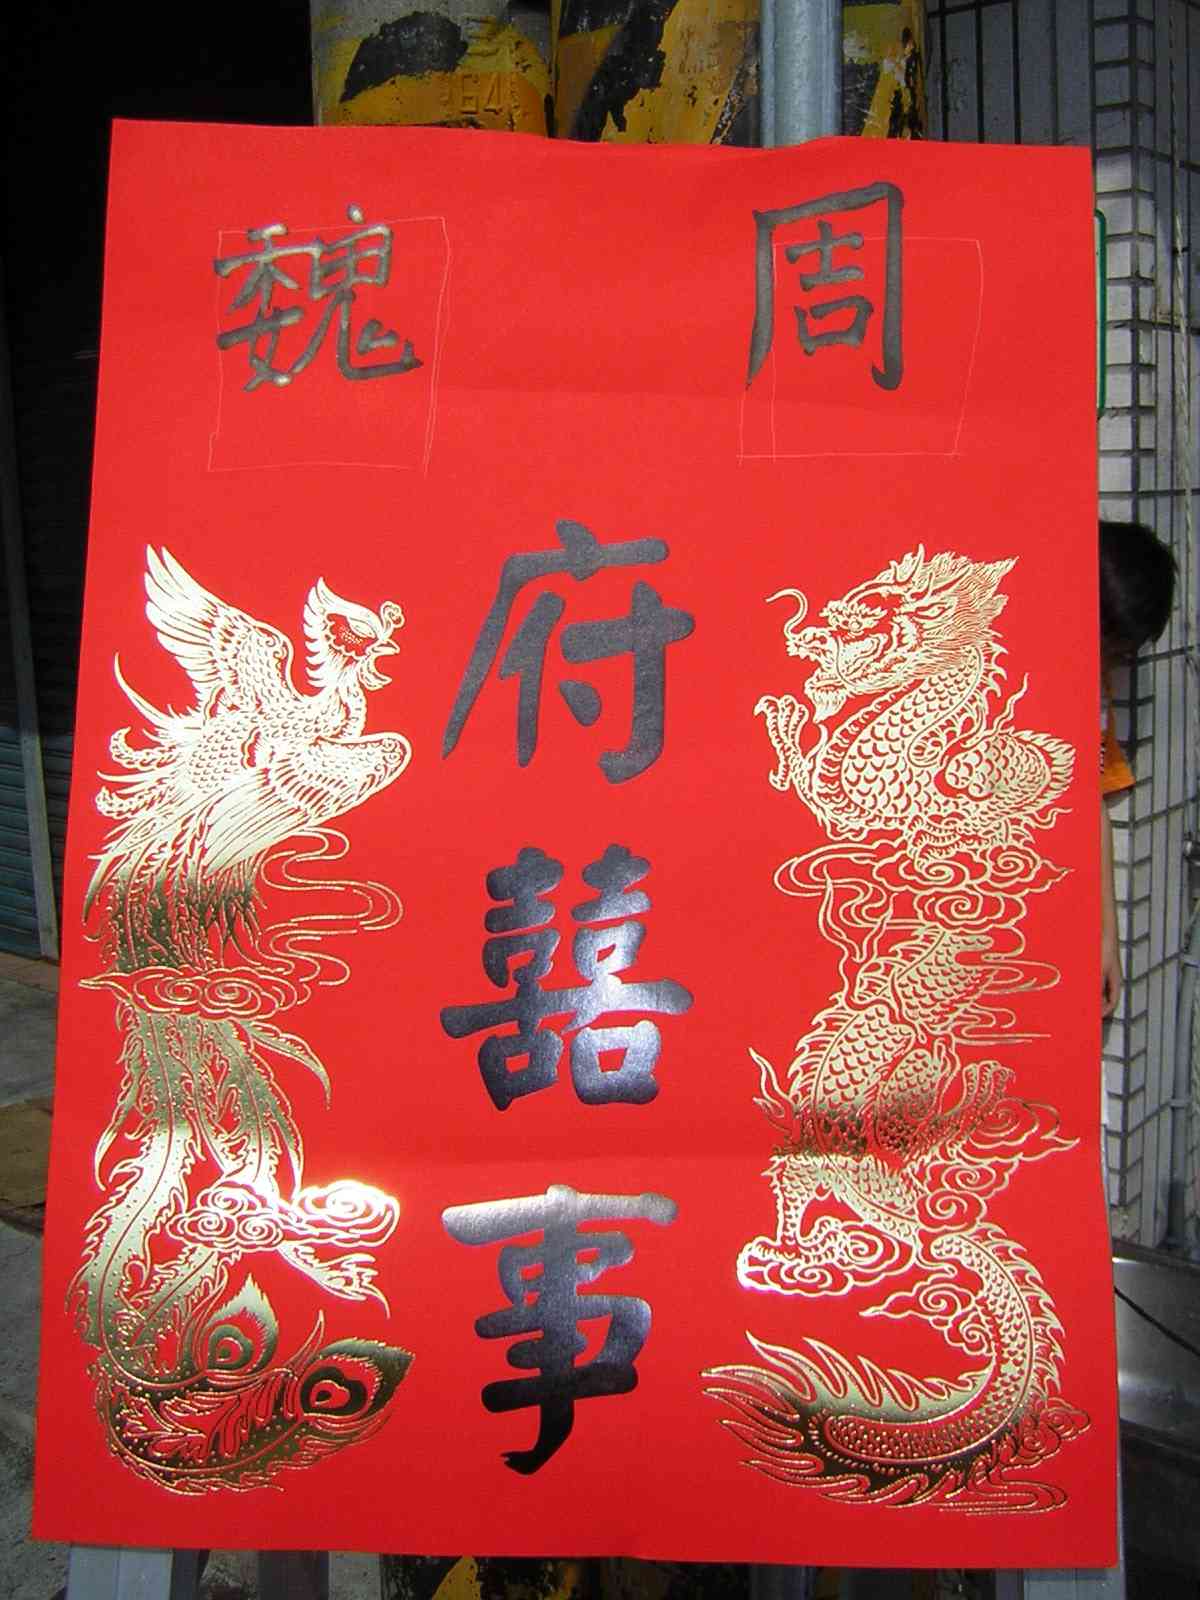 周 魏
府
囍
事
64